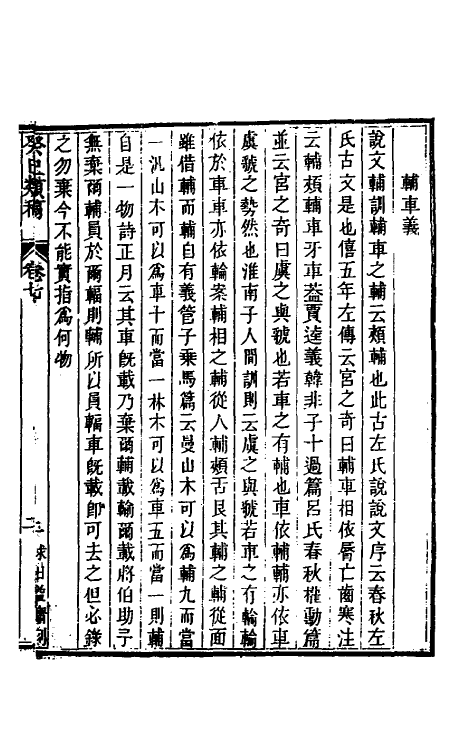 輔車義
說文輔訓輔車之輔云頰輔也此古左氏說說文序云春秋左
氏古文是也僖五年左傳云宮之奇曰輔車相依脣亡齒寒注
云輔頰輔車牙車葢賈逵義韓非子十過篇呂氏春秋權動篇
並云宮之奇曰虞之與虢也若車之有輔也車依輔輔亦依車
虞虢之勢然也淮南子人間訓則云虞之與虢若車之有輪輪
依於車車亦依輪案輔相之輔從人輔頰舌艮其輔之輔從面
雖借輔而輔自有義管子乘馬篇云曼山木可以爲輔九而當
一汎山木可以爲車十而當一林木可以爲車五而當一則輔
自是一物詩正月云其車旣載乃棄爾輔載輸爾載將伯助予
無棄爾輔員於爾輻則輔所以員輻車旣載卽可去之但必錄
之勿棄今不能實指爲何物
癸巳類稿
卷七
二
求日益齋刻